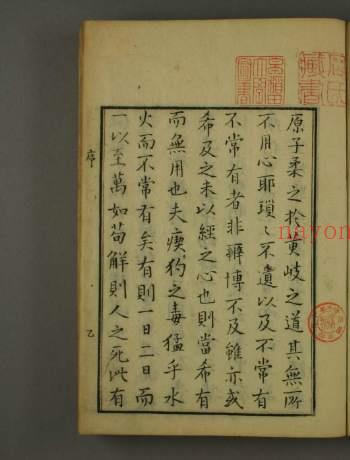 原子柔之於黄岐之道其無所
不用心耶瑣〻不遺以及不常有
不常有者非辨博不及雖亦或
希及之未以經之心也則當希有
而無用也夫瘈狗之毒猛乎水
火而不常有矣有則一日二日而
一以至萬如苟解則人之死此有
序
乙
藏書
nayon